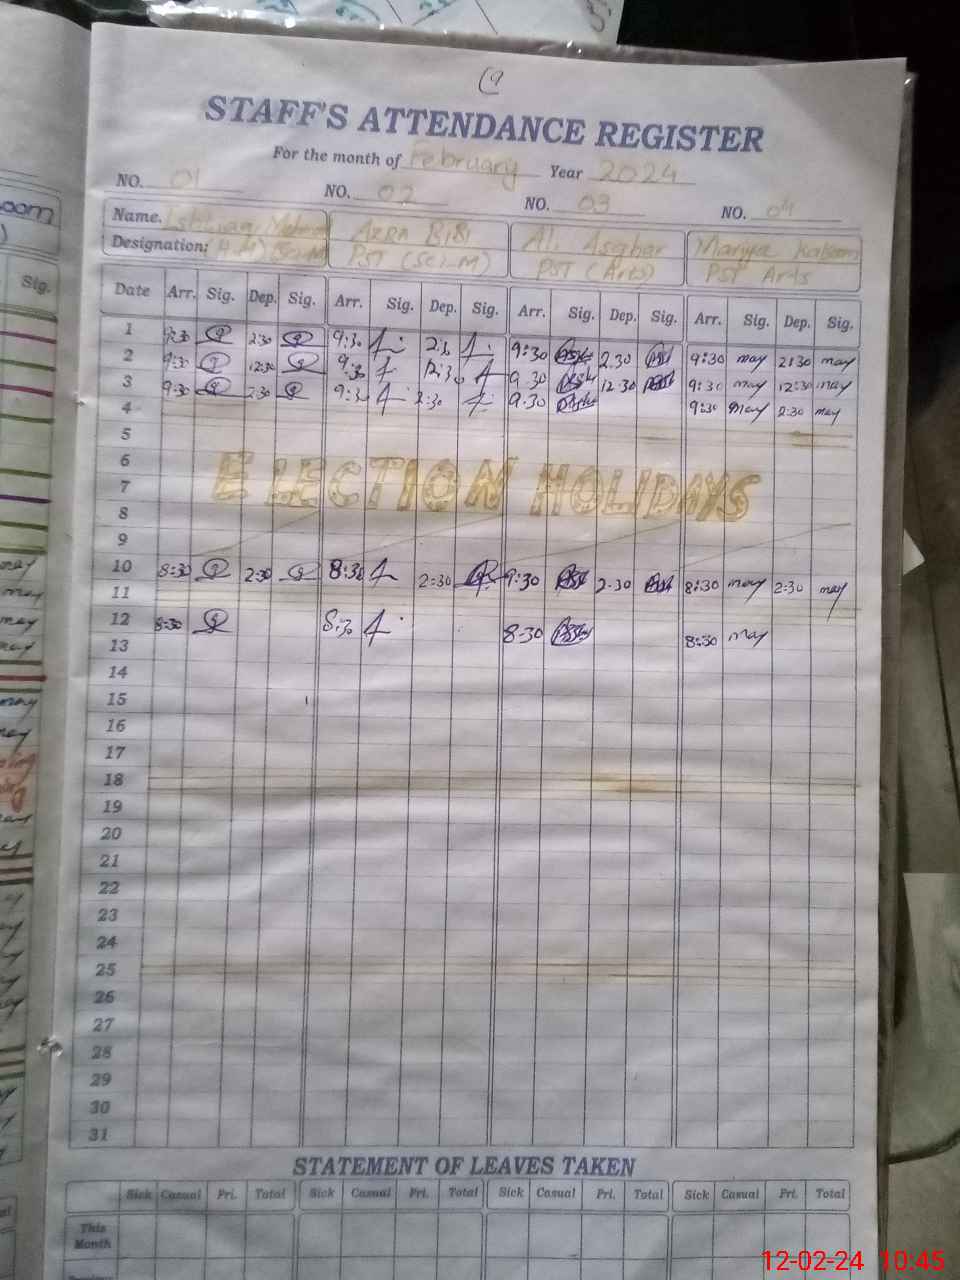 (9
STAFF'S ATTENDANCE REGISTER
For the month of February Year 2024
NO. 01 NO. 02 NO. 03 NO. 04
Name. AZRA BiBi Ali Asghar Mariya Kaloom
Designation: (H.M) (Sci-M) PST (Sci-M) PST (Arts) PST Arts
Date Arr. Sig. Dep. Sig. Arr. Sig. Dep. Sig. Arr. Sig. Dep. Sig. Arr. Sig. Dep. Sig.
1 9:30 2:30 9:30 2:30 9:30 2.30 9:30 may 2:30 may
2 9:30 12:30 9:30 12:30 9.30 12:30 9:30 may 12:30 may
3 9:30 2:30 9:30 2:30 9.30 9:30 may 2:30 may
4
5
6
ELECTION HOLIDAYS
7
8
9
10 8:30 2:30 8:30 2:30 9:30 2.30 8:30 may 2:30 may
11
12 8:30 8:30 8-30 8:30 may
13
14
15
16
17
18
19
20
21
22
23
24
25
26
27
28
29
30
31
STATEMENT OF LEAVES TAKEN
Sick Casual Pri. Total Sick Casual Pri. Total Sick Casual Pri. Total Sick Casual Pri. Total
This
Month
12-02-24 10:45
oom
)
Sig.
may
may
may
may